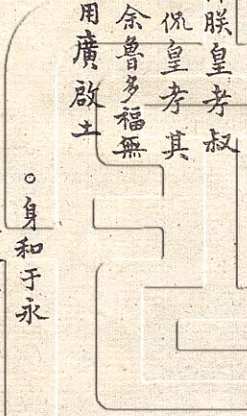 朕皇考叔
侃皇考其
余魯多福無
用廣啟土
。身和于永